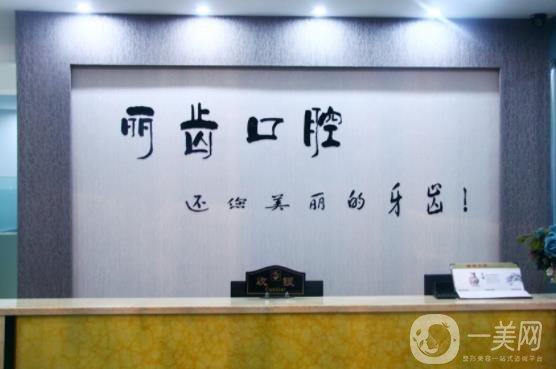 丽齿口腔
还您美丽的牙齿!
收银
Cashier
一美网
整形美容一站式咨询平台